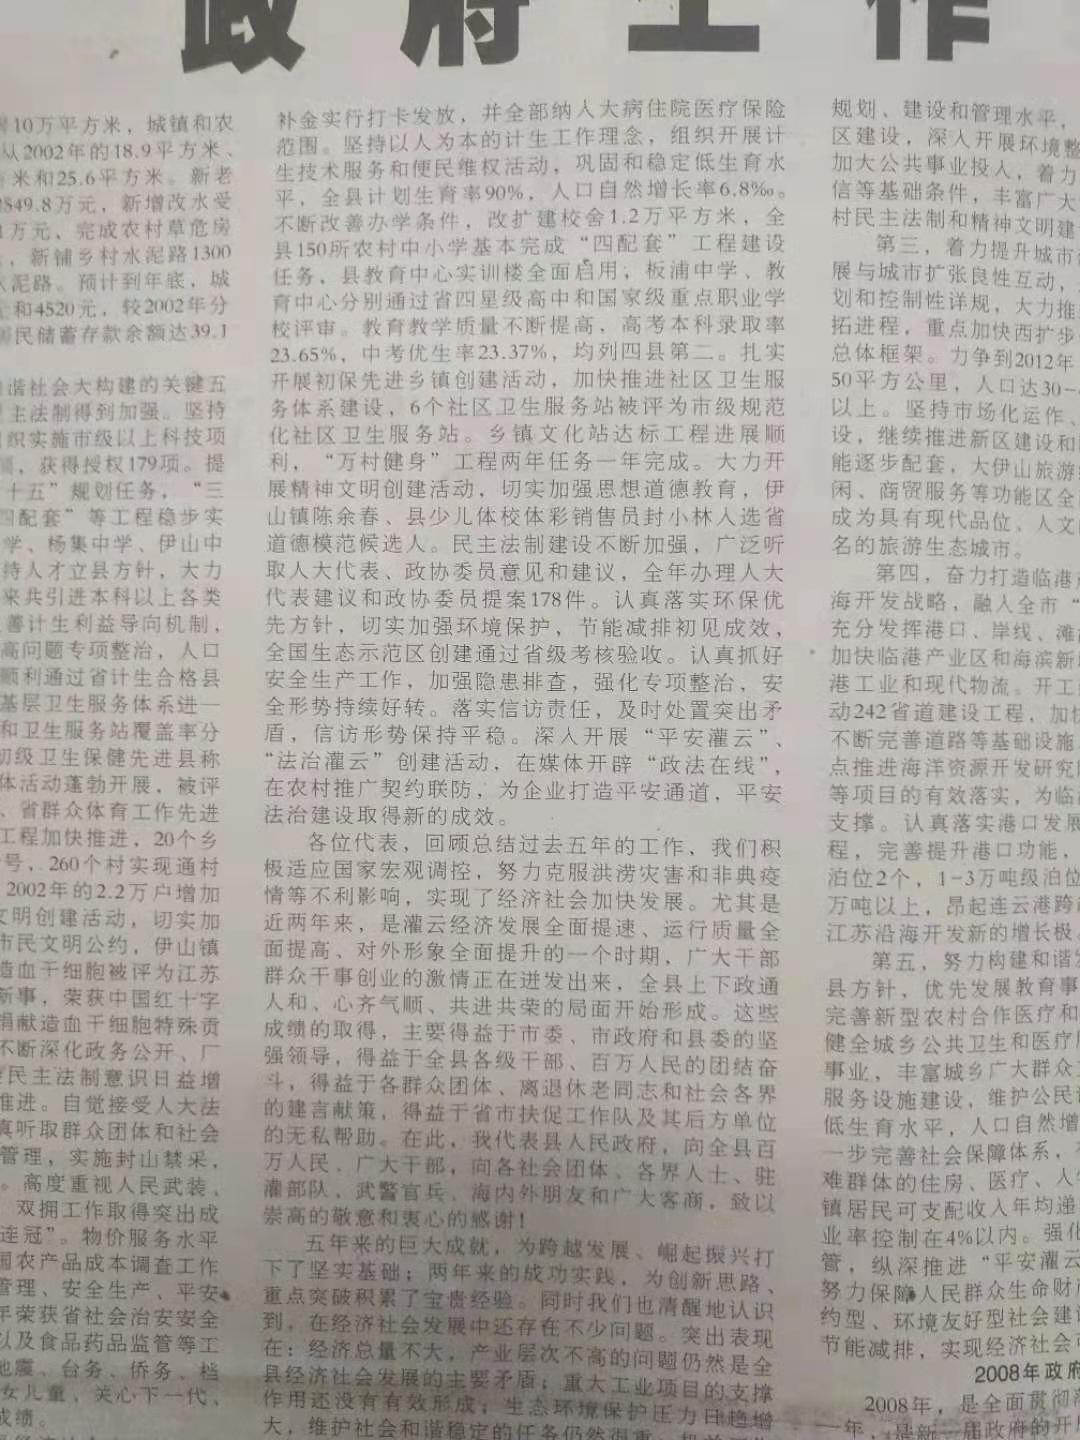 政府工作
10万平方米，城镇和农
从2002年的18.9平方米、
米和25.6平方米。新老
849.8万元，新增改水受
万元、完成农村草危房
，新铺乡村水泥路1300
水泥路。预计到年底，城
和4520元，较2002年分
居民储蓄存款余额达39.1
谐社会大构建的关键五
主法制得到加强。坚持
组织实施市级以上科技项
，获得授权179项。提
十五”规划任务，“三
四配套”等工程稳步实
学、杨集中学、伊山中
持人才立县方针，大力
来共引进本科以上各类
善计生利益导向机制，
高问题专项整治，人口
顺利通过省计生合格县
基层卫生服务体系进一
和卫生服务站覆盖率分
初级卫生保健先进县称
体活动蓬勃开展，被评
、省群众体育工作先进
工程加快推进，20个乡
号，260个村实现通村
2002年的2.2万户增加
文明创建活动，切实加
市民文明公约，伊山镇
造血干细胞被评为江苏
新事，荣获中国红十字
捐献造血干细胞特殊贡
不断深化政务公开、厂
民主法制意识日益增
推进。自觉接受人大法
真听取群众团体和社会
管理，实施封山禁采，
。高度重视人民武装、
双拥工作取得突出成
连冠”。物价服务水平
国农产品成本调查工作
管理、安全生产、平安
年荣获省社会治安安全
以及食品药品监管等工
地震、台务、侨务、档
女儿童，关心下一代、
成绩。
补金实行打卡发放，并全部纳入大病住院医疗保险
范围。坚持以人为本的计生工作理念，组织开展计
生技术服务和便民维权活动，巩固和稳定低生育水
平，全县计划生育率90%，人口自然增长率6.8‰。
不断改善办学条件，改扩建校舍1.2万平方米，全
县150所农村中小学基本完成“四配套”工程建设
任务，县教育中心实训楼全面启用，板浦中学、教
育中心分别通过省四星级高中和国家级重点职业学
校评审。教育教学质量不断提高，高考本科录取率
23.65%，中考优生率23.37%，均列四县第二。扎实
开展初保先进乡镇创建活动，加快推进社区卫生服
务体系建设，6个社区卫生服务站被评为市级规范
化社区卫生服务站。乡镇文化站达标工程进展顺
利，“万村健身”工程两年任务一年完成。大力开
展精神文明创建活动，切实加强思想道德教育，伊
山镇陈余春、县少儿体校体彩销售员封小林入选省
道德模范候选人。民主法制建设不断加强，广泛听
取人大代表、政协委员意见和建议，全年办理人大
代表建议和政协委员提案178件。认真落实环保优
先方针，切实加强环境保护，节能减排初见成效，
全国生态示范区创建通过省级考核验收。认真抓好
安全生产工作，加强隐患排查，强化专项整治，安
全形势持续好转。落实信访责任，及时处置突出矛
盾，信访形势保持平稳。深入开展“平安灌云”、
“法治灌云”创建活动，在媒体开辟“政法在线”，
在农村推广契约联防，为企业打造平安通道，平安
法治建设取得新的成效。
各位代表，回顾总结过去五年的工作，我们积
极适应国家宏观调控，努力克服洪涝灾害和非典疫
情等不利影响，实现了经济社会加快发展。尤其是
近两年来，是灌云经济发展全面提速、运行质量全
面提高、对外形象全面提升的一个时期，广大干部
群众干事创业的激情正在迸发出来，全县上下政通
人和、心齐气顺、共进共荣的局面开始形成。这些
成绩的取得，主要得益于市委、市政府和县委的坚
强领导，得益于全县各级干部、百万人民的团结奋
斗，得益于各群众团体、离退休老同志和社会各界
的建言献策，得益于省市扶促工作队及其后方单位
的无私帮助。在此，我代表县人民政府，向全县百
万人民、广大干部，向各社会团体、各界人士、驻
灌部队、武警官兵、海内外朋友和广大客商，致以
崇高的敬意和衷心的感谢！
五年来的巨大成就，为跨越发展、崛起振兴打
下了坚实基础；两年来的成功实践，为创新思路、
重点突破积累了宝贵经验。同时我们也清醒地认识
到，在经济社会发展中还存在不少问题。突出表现
在：经济总量不大，产业层次不高的问题仍然是全
县经济社会发展的主要矛盾；重大工业项目的支撑
作用还没有有效形成；生态环境保护压力日趋增
大，维护社会和谐稳定的任务仍然很重；
规划、建设和管理水平，
区建设，深入开展环境整
加大公共事业投入，着力
信等基础条件，丰富广大
村民主法制和精神文明建
第三，着力提升城市
展与城市扩张良性互动，
划和控制性详规，大力推
拓进程，重点加快西扩步
总体框架。力争到2012年
50平方公里，人口达30-
以上。坚持市场化运作、
设，继续推进新区建设和
能逐步配套，大伊山旅游
闲、商贸服务等功能区全
成为具有现代品位、人文
名的旅游生态城市。
第四，奋力打造临港
海开发战略，融入全市“
充分发挥港口、岸线、滩
加快临港产业区和海滨新
港工业和现代物流。开工
动242省道建设工程，加快
不断完善道路等基础设施
点推进海洋资源开发研究
等项目的有效落实，为临
支撑。认真落实港口发展
程，完善提升港口功能，
泊位2个，1-3万吨级泊位
万吨以上，昂起连云港跨
江苏沿海开发新的增长极
第五，努力构建和谐
县方针，优先发展教育事
完善新型农村合作医疗和
健全城乡公共卫生和医疗
事业，丰富城乡广大群众
服务设施建设，维护公民
低生育水平，人口自然增
一步完善社会保障体系，
难群体的住房、医疗、人
镇居民可支配收入年均递
业率控制在4%以内。强化
管，纵深推进“平安灌云
努力保障人民群众生命财
约型、环境友好型社会建
节能减排，实现经济社会
2008年政府
2008年，是全面贯彻
一年，是新一届政府的开